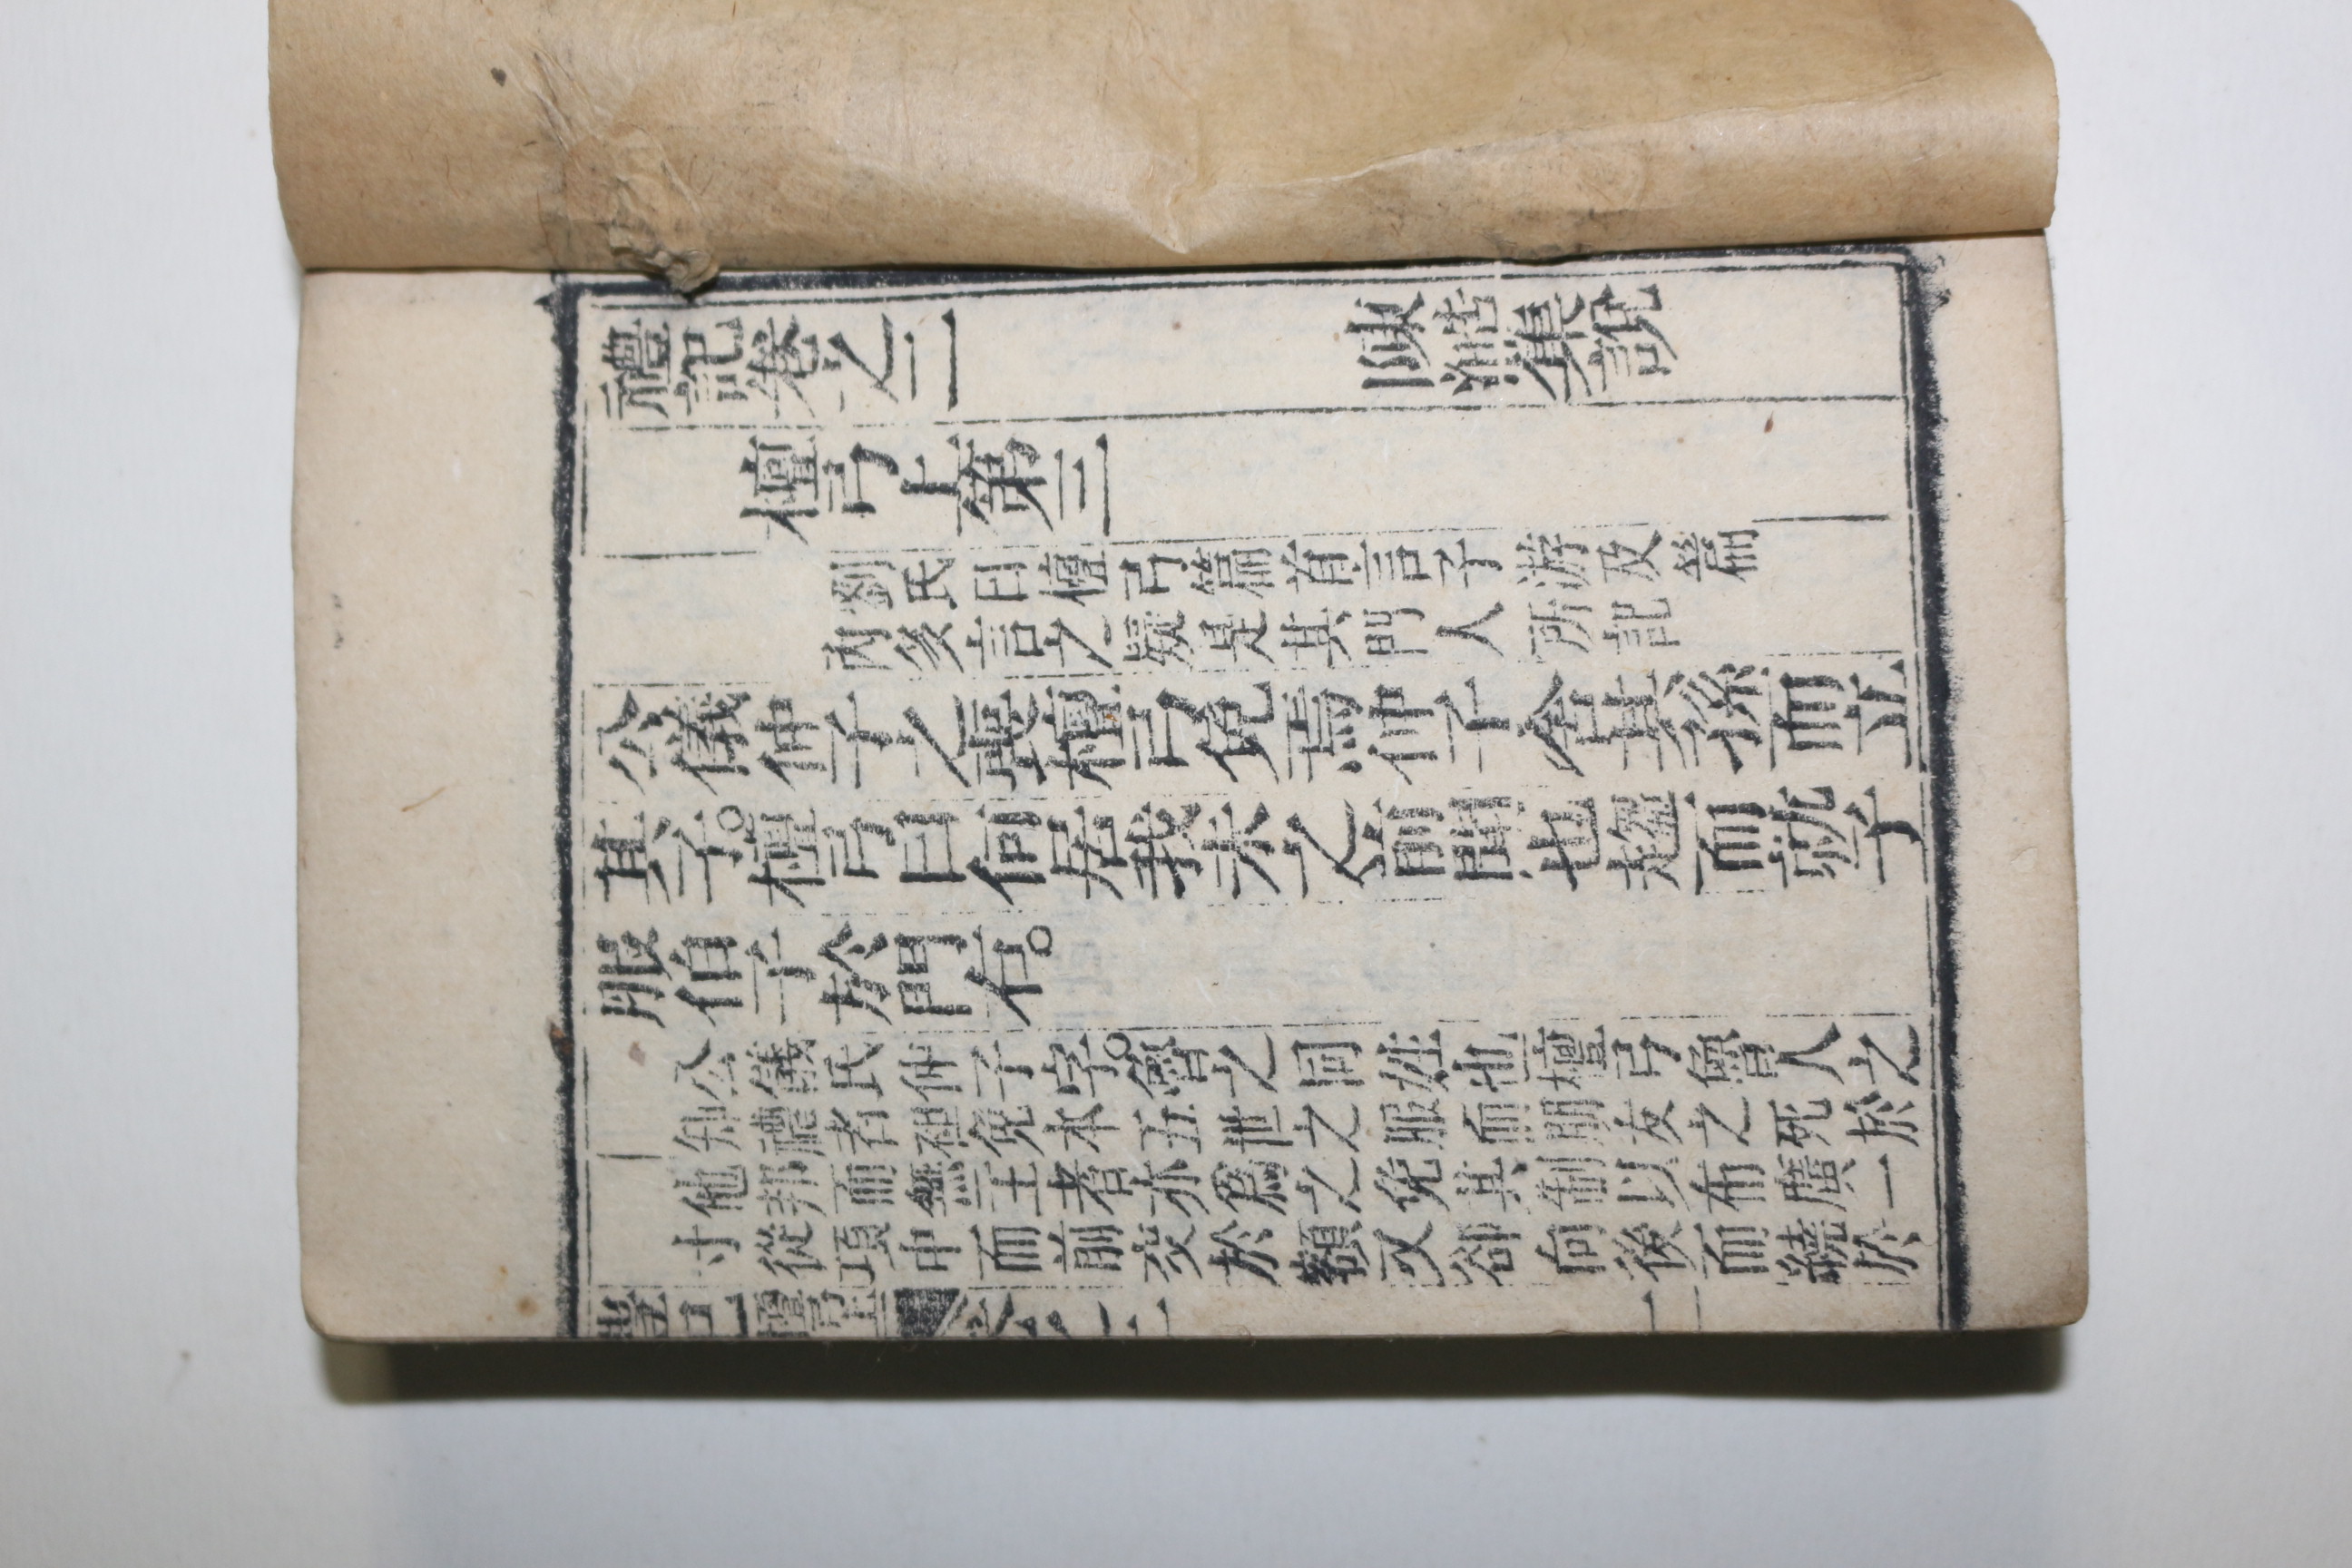 禮記卷之二
陳澔集說
檀弓上第三
劉氏曰檀弓篇首言子游及篇
內多言之疑是其門人所記
公儀仲子之喪檀弓免焉仲子舍其孫而立
其子。檀弓曰何居我未之前聞也趨而就子
服伯子於門右。
公儀氏仲子字。魯之同姓也檀弓魯人之
知禮者袒免本五世之服而朋友之死於
他邦而無主者亦爲之免其制以布廣一
寸從項中而前交於額又卻向後而繞於
禮記 檀弓上 卷之二 一